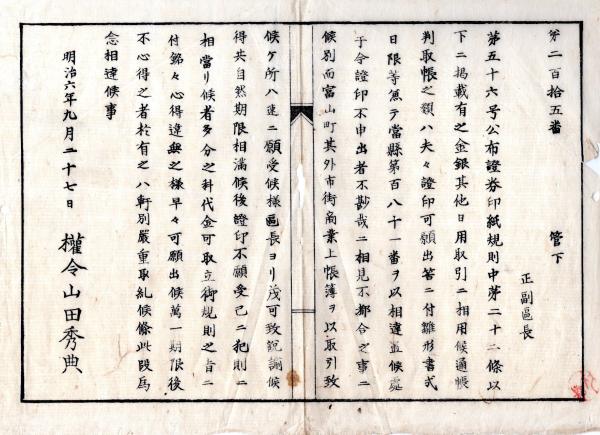 第二百拾五番
管下
正副區長
第五十六号公布證券印紙規則中第二十二條以
下ニ掲載有之金銀其他日用取引ニ相用候通帳
判取帳之類ハ夫々證印可願出筈ニ付雛形書式
日限等無テ當縣第百八十一番ヲ以相達置候處
于今證印不申出者不尠哉ニ相見不都合之事ニ
候別而富山町其外市街商業上帳簿ヲ以取引致
候ケ所ハ速ニ願受候様區長ヨリ茂可致說諭候
得共自然期限相満候後證印不願受已ニ犯則ニ
相當リ候者多分之科代金可取立御規則之旨ニ
付銘々心得違無之様早々可願出候萬一期限後
不心得之者於有之ハ軒別嚴重取糺候條此段爲
念相達候事
明治六年九月二十七日
權令山田秀典